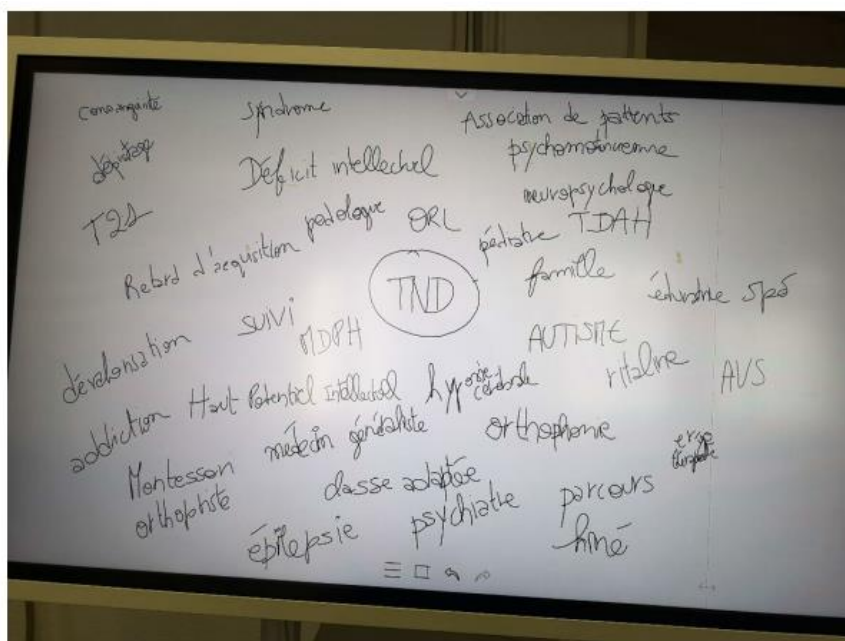 consanguinité
syndrome
Association de patients
dépistage
Déficit intellectuel
psychomotricienne
T21
neuropsychologue
Retard d'acquisition
pedologue
ORL
pédiatre
TDAH
TND
famille
éducatrice spé
dévalorisation
suivi
MDPH
AUTISME
ritaline
AVS
addiction
Haut Potentiel Intellectuel
hypoxie
cérébrale
Montesson
médecin généraliste
orthophonie
ergo
thérapeute
orthoptiste
classe adaptée
parcours
épilepsie
psychiatre